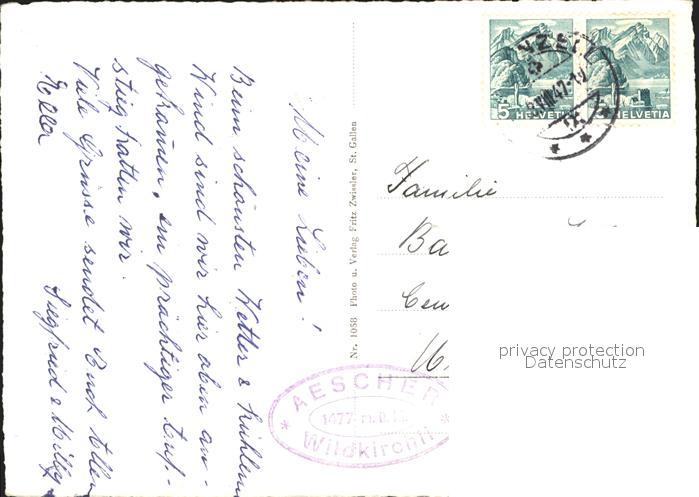 Meine Lieben!
Beim schönsten Wetter & kühlem
Wind sind wir hier oben an-
gekommen, ein prächtiger Auf-
stieg hatten wir.
Viele Grüsse sendet Euch Allen
Siegfried & Milly
Keller
Nr. 1058 Photo u. Verlag Fritz Zwissler, St. Gallen
5 HELVETIA
HELVETIA
NZELL
47-19
Familie
Ba
AESCHER
1477 m.ü.M.
* Wildkirchli *
privacy protection
Datenschutz